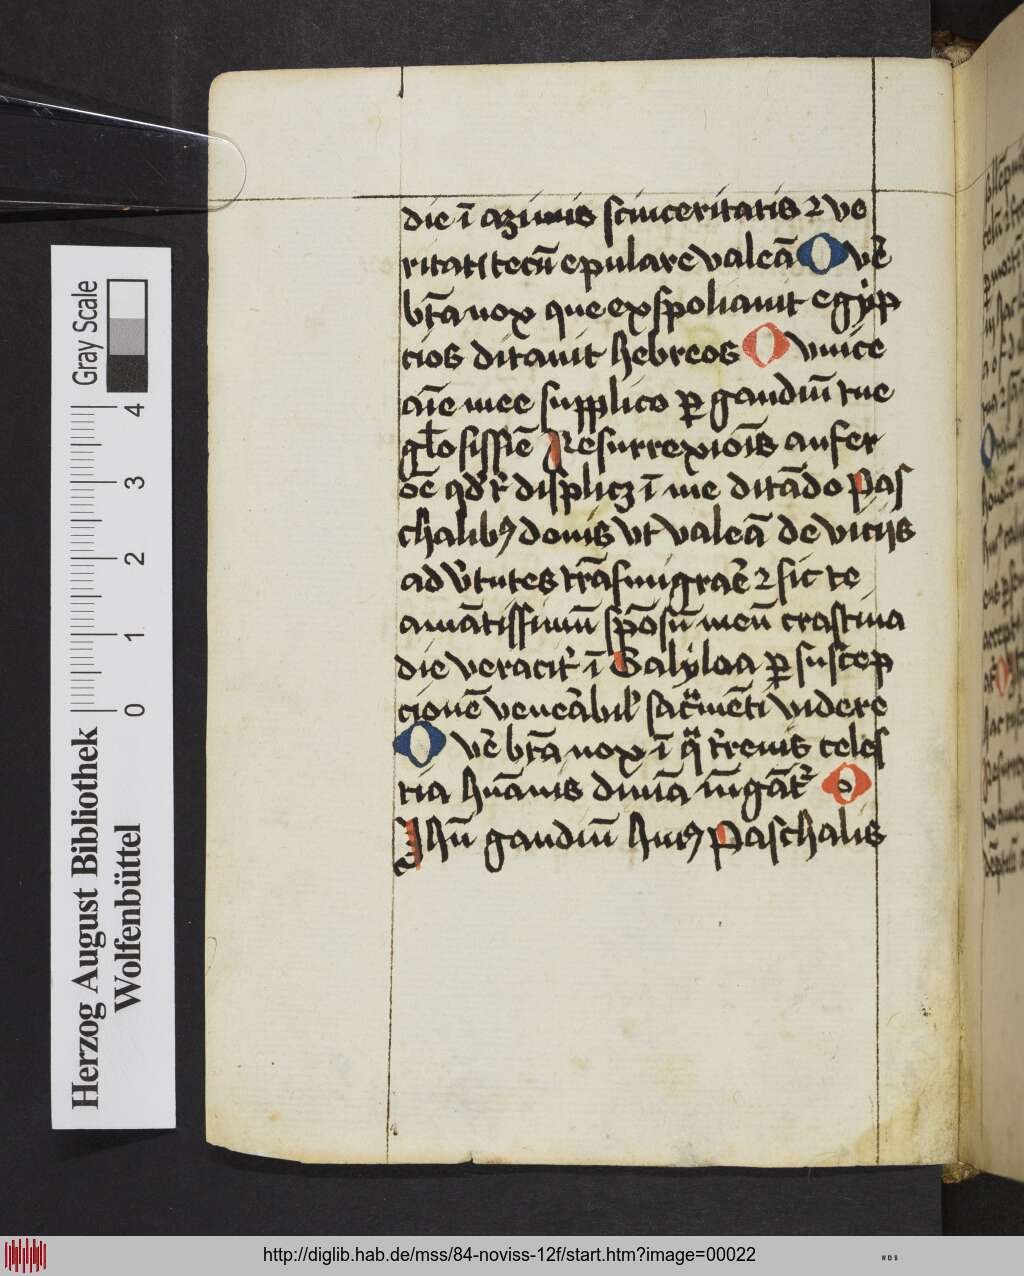 die ī azimis sinceritatis ⁊ ve
ritat(tecū epulare valeā O vē
bt̄a nox que exspoliauit egỳp
cios ditauit hebreos O vnice
aīe mee supplico ꝑ gaudiū tue
gl̄osissīe Resurrexiōis aufer
oē qd̓ t̓ displicꝫ ī me ditādo Pas
chalibꝯ donis vt valeā de vicijs
ad v̓tutes trāsmigrar̄e ⁊ sic te
amātissimū spōsū meū crastina
die veracit̓ ī Galỳlaa ꝑ suscep
cionē veneāb̓il̓ sac̄mēti videre
O vē bt̄a nox ī q̄ t̓renis celes
tia hūanis diuīa iūgāt̓ O
Jhū gaudiū huiꝯ Paschalis
Herzog August Bibliothek
Wolfenbüttel
0 1 2 3 4
Gray Scale
http://diglib.hab.de/mss/84-noviss-12f/start.htm?image=00022